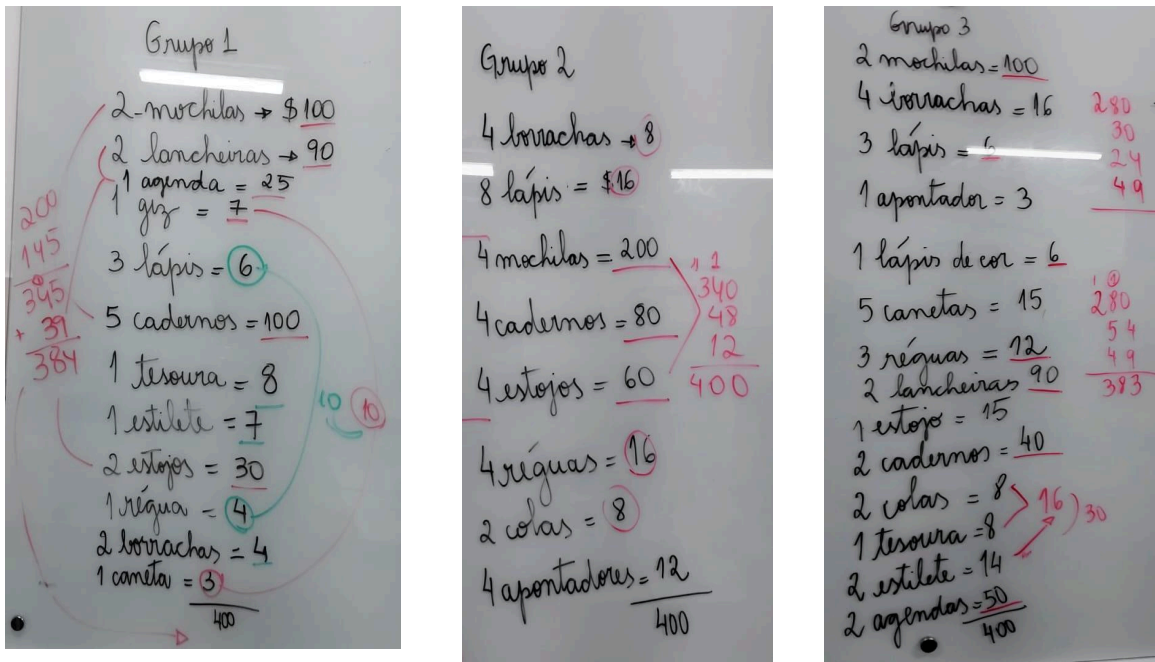 Grupo 1
2 mochilas → $100
2 lancheiras → 90
1 agenda = 25
1 giz = 7
3 lápis = 6
5 cadernos = 100
1 tesoura = 8
1 estilete = 7
2 estojos = 30
1 régua = 4
2 borrachas = 4
1 caneta = 3
400
200
145
345
+ 39
384
10
10
Grupo 2
4 borrachas → 8
8 lápis = $16
4 mochilas = 200
4 cadernos = 80
4 estojos = 60
4 réguas = 16
2 colas = 8
4 apontadores = 12
400
1 1
340
48
12
400
Grupo 3
2 mochilas = 100
4 borrachas = 16
3 lápis = 6
1 apontador = 3
1 lápis de cor = 6
5 canetas = 15
3 réguas = 12
2 lancheiras 90
1 estojo = 15
2 cadernos = 40
2 colas = 8
1 tesoura = 8
2 estilete = 14
2 agendas = 50
400
16
30
280
30
24
49
280
54
49
383